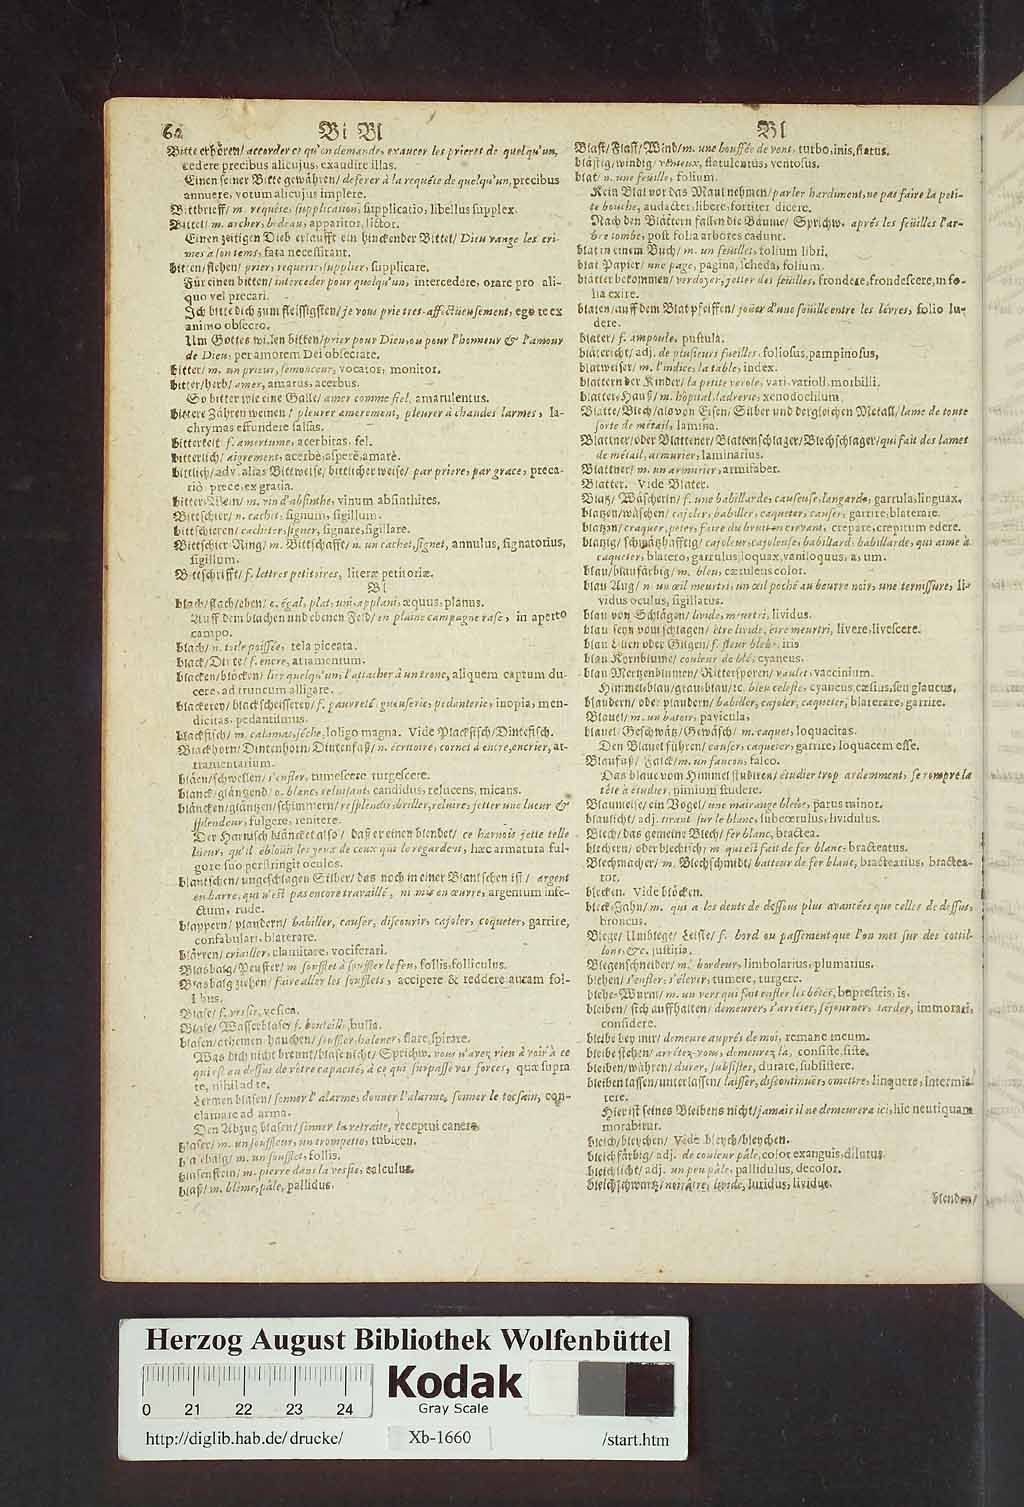 62 Bi Bl
Bitte erhören/ accorder ce qu'on demande, exaucer les prieres de quelqu'un,
cedere precibus alicujus, exaudire illas.
Einen seiner Bitte gewähren/ deferer à la requête de quelqu'un, precibus
annuere, votum alicujus implere.
Bittbrieff/ m. requête, supplication, supplicatio, libellus supplex.
Bittel/ m. archer, bedeau, apparitor, lictor.
Einen zeitigen Dieb erlaufft ein hinckender Bittel/ Dieu range les cri-
mes à son tems, fata necessitant.
bitten/ flehen/ prier, requerir, supplier, supplicare.
Für einen bitten/ interceder pour quelqu'un, intercedere, orare pro ali-
quo vel precari.
Ich bitte dich zum fleissigsten/ je vous prie tres-affectüeusement, ego te ex
animo obsecro.
Um Gottes willen bitten/ prier pour Dieu, ou pour l'honneur & l'amour
de Dieu, per amorem Dei obsecrare.
bitter/ m. un prieur, semonceur, vocator, monitor.
bitter/ herb/ amer, amarus, acerbus.
So bitter wie eine Galle/ amer comme fiel, amarulentus.
bittere Zähren weinen/ pleurer amerement, pleurer à chaudes larmes, la-
chrymas effundere salsas.
bitterkeit f. amertume, acerbitas, fel.
bitterlich/ aigrement, acerbè, asperè, amarè.
bittlich/ adv. alias Bittweise/ bittlicher weise/ par priere, par grace, preca-
riò prece, ex gratia.
bitter-Wein/ m. vin d'absinthe, vinum absinthites.
Bittschier/ n. cachet, signum, sigillum.
bittschieren/ cacheter, signer, signare, sigillare.
Bittschier Ring/ m. Bittschafft/ n. un cachet, signet, annulus, signatorius,
sigillum.
Bittschrifft/ f. lettres petitoires, literæ petitoriæ.
Bl
blach/ flach/ eben/ c. égal, plat, uni, applani, æquus, planus.
Auff dem blachen und ebenen Feld/ en plaine campagne rase, in aperto
campo.
blach/ n. toile poissée, tela piceata.
black/ Dinte/ f. encre, atramentum.
blacken/ blöcken/ lier quelqu'un, l'attacher à un tronc, aliquem captum du-
cere, ad truncum alligare.
blackerey/ blackscheisserey/ f. pauvreté, gueuserie, pedanterie, inopia, men-
dicitas, pedantismus.
blackfisch/ m. calamar, séche, loligo magna. Vide Plackfisch/ Dintefisch.
Blackhorn/ Dintenhorn/ Dintenfaß/ n. écritoire, cornet à encre, encrier, at-
tramentarium.
bläen/ schwellen/ s'enfler, tumescere, turgescere.
blanck/ gläntzend/ o. blanc, reluisant, candidus, relucens, micans.
bläncken/ gläntzen/ schimmern/ resplendir, briller, reluire, jetter une lueur &
splendeur, fulgere, renitere.
Der Harnisch bläncket also/ daß er einen blendet/ ce harnois jette telle
lueur, qu'il éblouit les yeux de ceux qui le regardent, hæc armatura ful-
gore suo perstringit oculos.
blantschen/ ungeschlagen Silber/ das noch in einer Blantschen ist/ argent
en barre, qui n'est pas encore travaillé, ni mis en œuvre, argentum infe-
ctum, rude.
blappern/ plaudern/ babiller, causer, discourir, cajoler, coqueter, garrire,
confabulari, blaterare.
blärren/ criailler, clamitare, vociferari.
Blasbalg/ Peuster/ m soufflet à souffler le feu, follis, folliculus.
Blasbalg ziehen/ faire aller les soufflets, accipere & reddere auram fol-
libus.
Blase/ f. vessie, vesica.
Blase/ Wasserblase/ f. bouteille, bulla.
blasen/ athemen/ hauchen/ souffler, halener, flare, spirare.
Was dich nicht brennt/ blase nicht/ Sprichw. vous n'avez rien à voir à ce
qui est au dessus de vôtre capacité, à ce qui surpasse vos forces, quæ supra
te, nihil ad te.
Lermen blasen/ sonner l'alarme, donner l'alarme, sonner le tocsain, con-
clamare ad arma.
Den Abzug blasen/ sonner la retraite, receptui canere.
blaser/ m. un souffleur, un trompette, tubicen.
blasbalg/ m. un soufflet, follis.
blasenstein/ m. pierre dans la vessie, calculus.
blaß/ m. blême, pâle, pallidus.
Bl
Blast/ Flast/ Wind/ m. une bouffée de vent, turbo, inis, flatus.
blästig/ windig/ venteux, flatulentus, ventosus.
blat/ n. une feuille, folium.
Kein Blat vor das Maul nehmen/ parler hardiment, ne pas faire la peti-
te bouche, audacter, libere, fortiter dicere.
Nach den Blättern fallen die Bäume/ Sprichw. aprés les feüilles l'ar-
bre tombe, post folia arbores cadunt.
blat in einem Buch/ m. un feuillet, folium libri.
blat Papier/ une page, pagina, scheda, folium.
blätter bekommen/ verdoyer, jetter des feuilles, frondere, frondescere, in fo-
lia exire.
blaten/ auff dem Blat pfeiffen/ joüer d'une feüille entre les lévres, folio lu-
dere.
blater/ f. ampoule, pustula.
blätericht/ adj. de plusieurs fueilles, foliosus, pampinosus,
blatweiser/ m. l'indice, la table, index.
blattern der Kinder/ la petite verole, vari, varioli, morbilli.
blatter-Hauß/ m. hôpital, ladrerie, xenodochium.
Blatte/ Blech/ als von Eisen/ Silber und dergleichen Metall/ lame de toute
sorte de métail, lamina.
Blattner/ oder Blattener/ Blattenschlager/ Blechschlager/ qui fait des lames
de métail, armurier, laminarius.
Blattner/ m. un armurier, armifaber.
Blatter. Vide Blater.
Blatz/ Wäscherin/ f. une babillarde, causeuse, langarde, garrula, linguax.
blatzen/ wäschen/ cajoler, babiller, caqueter, causer, garrire, blaterare.
blatzen/ craquer, peter, faire du bruit en crevant, crepare, crepitum edere.
blatzig/ schwätzhafftig/ cajoleur, cajoleuse, babillard, babillarde, qui aime à
caqueter, blatero, garrulus, loquax, vaniloquus, a, um.
blau/ blaufärbig/ m. bleu, cæruleus color.
blau Aug/ n. un œil meurtri, un œil poché au beurre noir, une ternissure, li-
vidus oculus, sigillatus.
blau von Schlägen/ livide, meurtri, lividus.
blau seyn vom schlagen/ être livide, être meurtri, livere, livescere.
blau Lilien oder Gilgen/ f. fleur bleue, iris
blau Kornblume/ couleur de blé, cyaneus.
blau Mertzenblumen/ Rittersporen/ vaciet, vaccinium.
Himmelblau/ graublau/ tc. bleu celeste, cyaneus, cæsius, seu glaucus,
blaudern/ oder plaudern/ babiller, cajoler, caqueter, blaterare, garrire.
Blauel/ m. un batoir, pavicula,
blauel/ Geschwätz/ Gewäsch/ m. caquet, loquacitas.
Den Blauel führen/ causer, caqueter, garrire, loquacem esse.
Blaufuß/ Falck/ m. un faucon, falco.
Das blaue vom Himmel studiren/ étudier trop ardemment, se rompre la
tête à étudier, nimium studere.
Blaumeise/ ein Vogel/ une mairange bleüe, parus minor.
blaulicht/ adj. tirant sur le blanc, subcœrulus, lividulus.
Blech/ das gemeine Blech/ fer blanc, bractea.
blechern/ oder blechtsch/ m qui est fait de fer blanc, bracteatus.
Blechmacher/ m. Blechschmidt/ batteur de fer blanc, bractearius, bractea-
tor.
blecken. Vide blöcken.
bleck-Zahn/ m. qui a les dents de dessous plus avancées que celles de dessus,
broncus.
Blege/ Umblege/ Leiste/ f. bord ou passement que l'on met sur des cottil-
lons, &c. justitia.
Blegenschneider/ m. bordeur, limbolarius, plumarius.
blehen/ s'enfler, s'élever, tumere, turgere.
blehe-Wurm/ m. un vers qui fait enfler les bêtes, buprestis, is.
bleiben/ sich auffhalten/ demeurer, s'arrêter, séjourner, tarder, immorari,
considere.
bleibe bey mir/ demeure auprés de moi, remane mecum.
bleibe stehen/ arrêtez-vous, demeurez là, consiste, siste.
bleiben/ währen/ durer, subsister, durare, subsistere.
bleiben lassen/ unterlassen/ laisser, discontinuer, omettre, linquere, intermit-
tere.
Hier ist seines Bleibens nicht/ jamais il ne demeurera ici, hic neutiquam
morabitur.
bleich/ bleychen/ Vide bleych/ bleychen.
bleichfärbig/ adj. de couleur pâle, color exanguis, dilutus.
bleichlicht/ adj. un peu pâle, pallidulus, decolor.
bleichschwartz/ noirâtre, livide, luridus, lividus.
blenden/
Herzog August Bibliothek Wolfenbüttel
0 21 22 23 24
Kodak
Gray Scale
http://diglib.hab.de/drucke/ Xb-1660 /start.htm